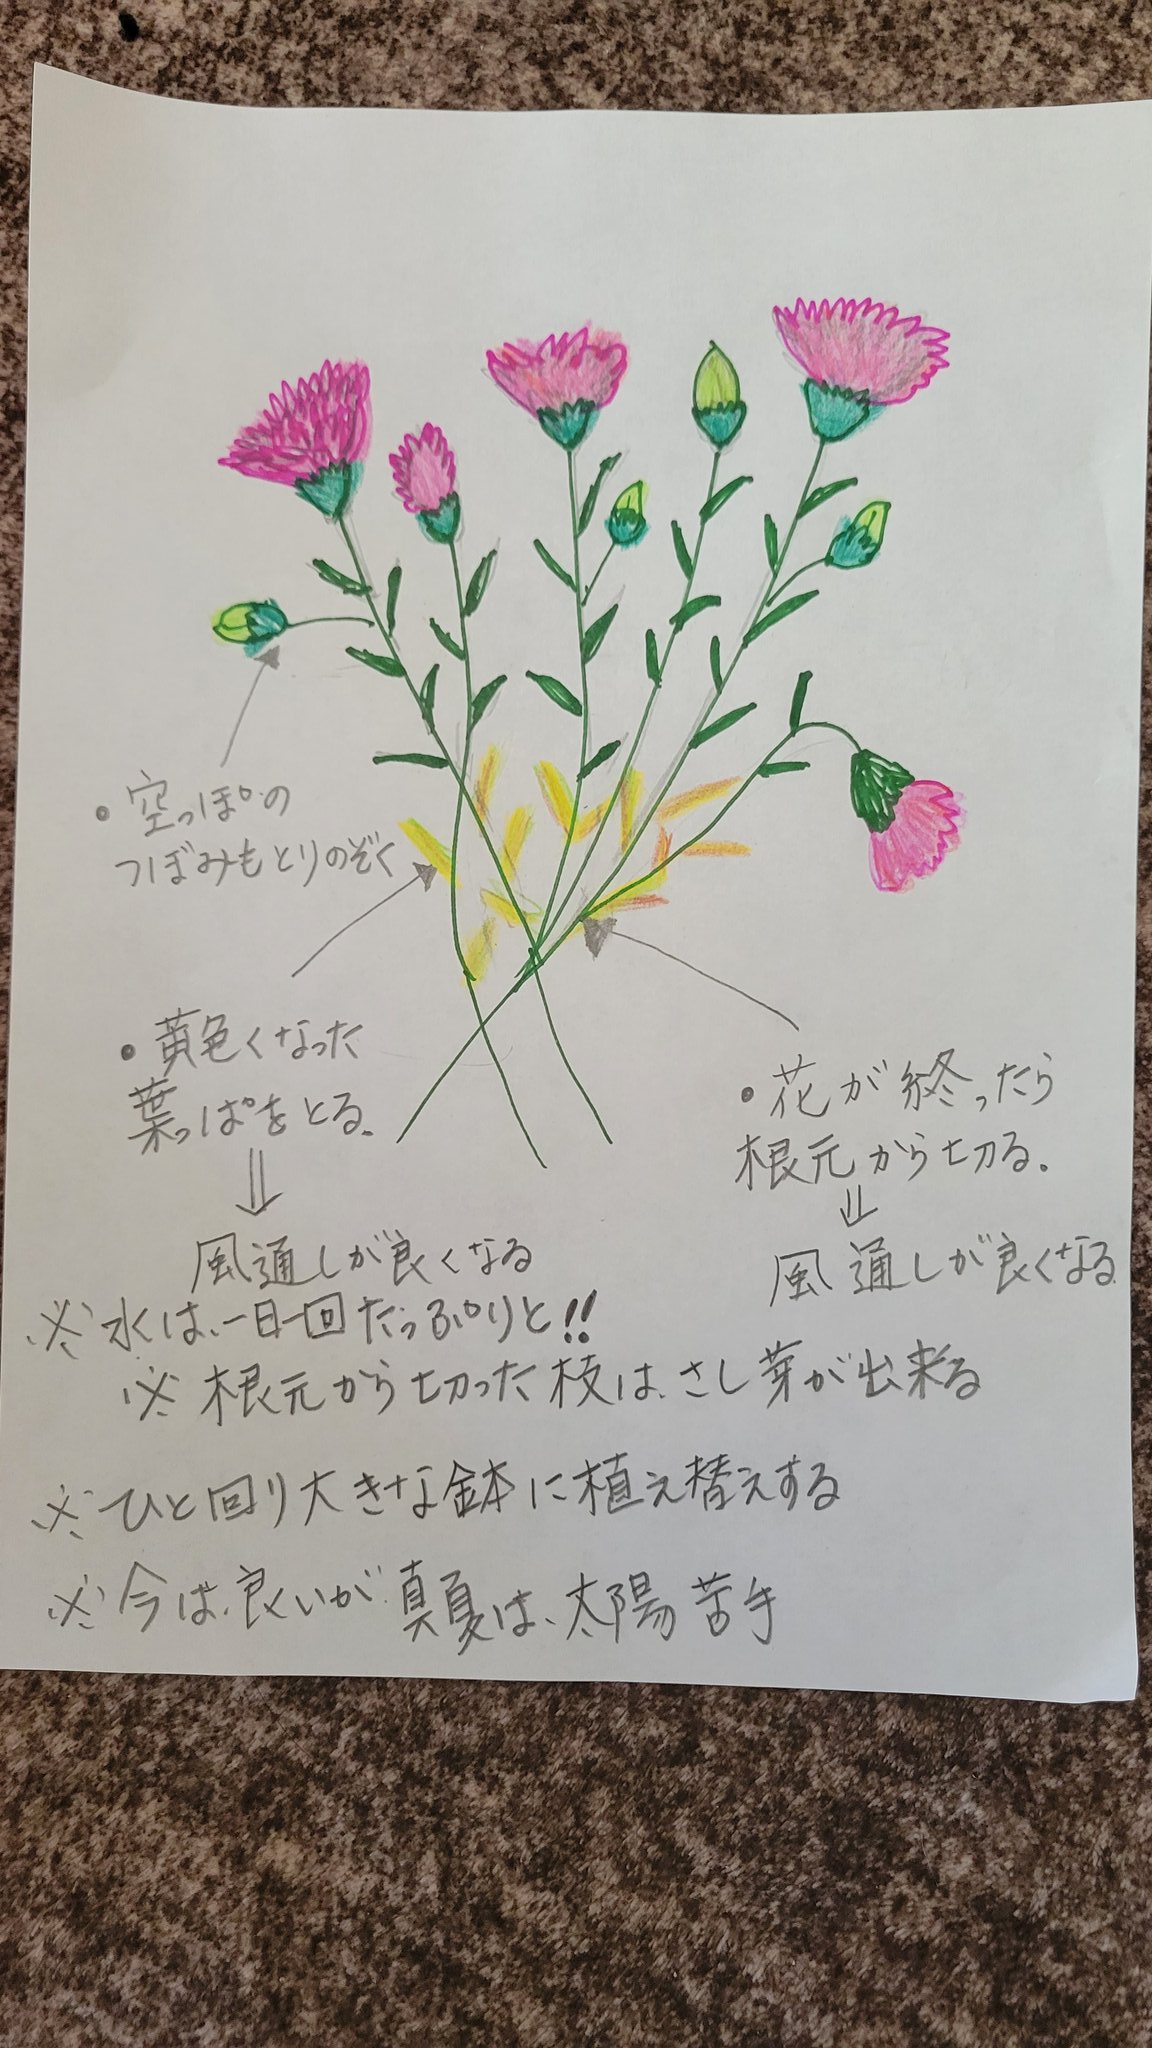 ・空っぽの
つぼみもとりのぞく
・黄色くなった
葉っぱをとる。
⇓
風通しが良くなる
・花が終ったら
根元から切る。
⇓
風通しが良くなる
※水は、一日一回たっぷりと!!
※根元から切った枝は、さし芽が出来る
※ひと回り大きな鉢に植え替えする
※今は、良いが真夏は、太陽苦手